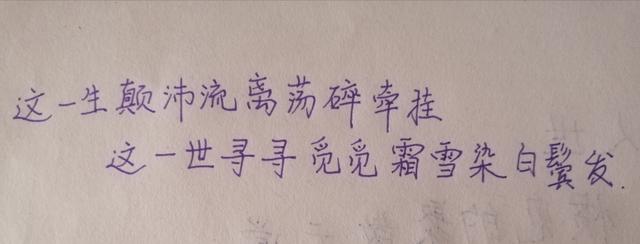 这一生颠沛流离荡碎牵挂
这一世寻寻觅觅霜雪染白鬓发.